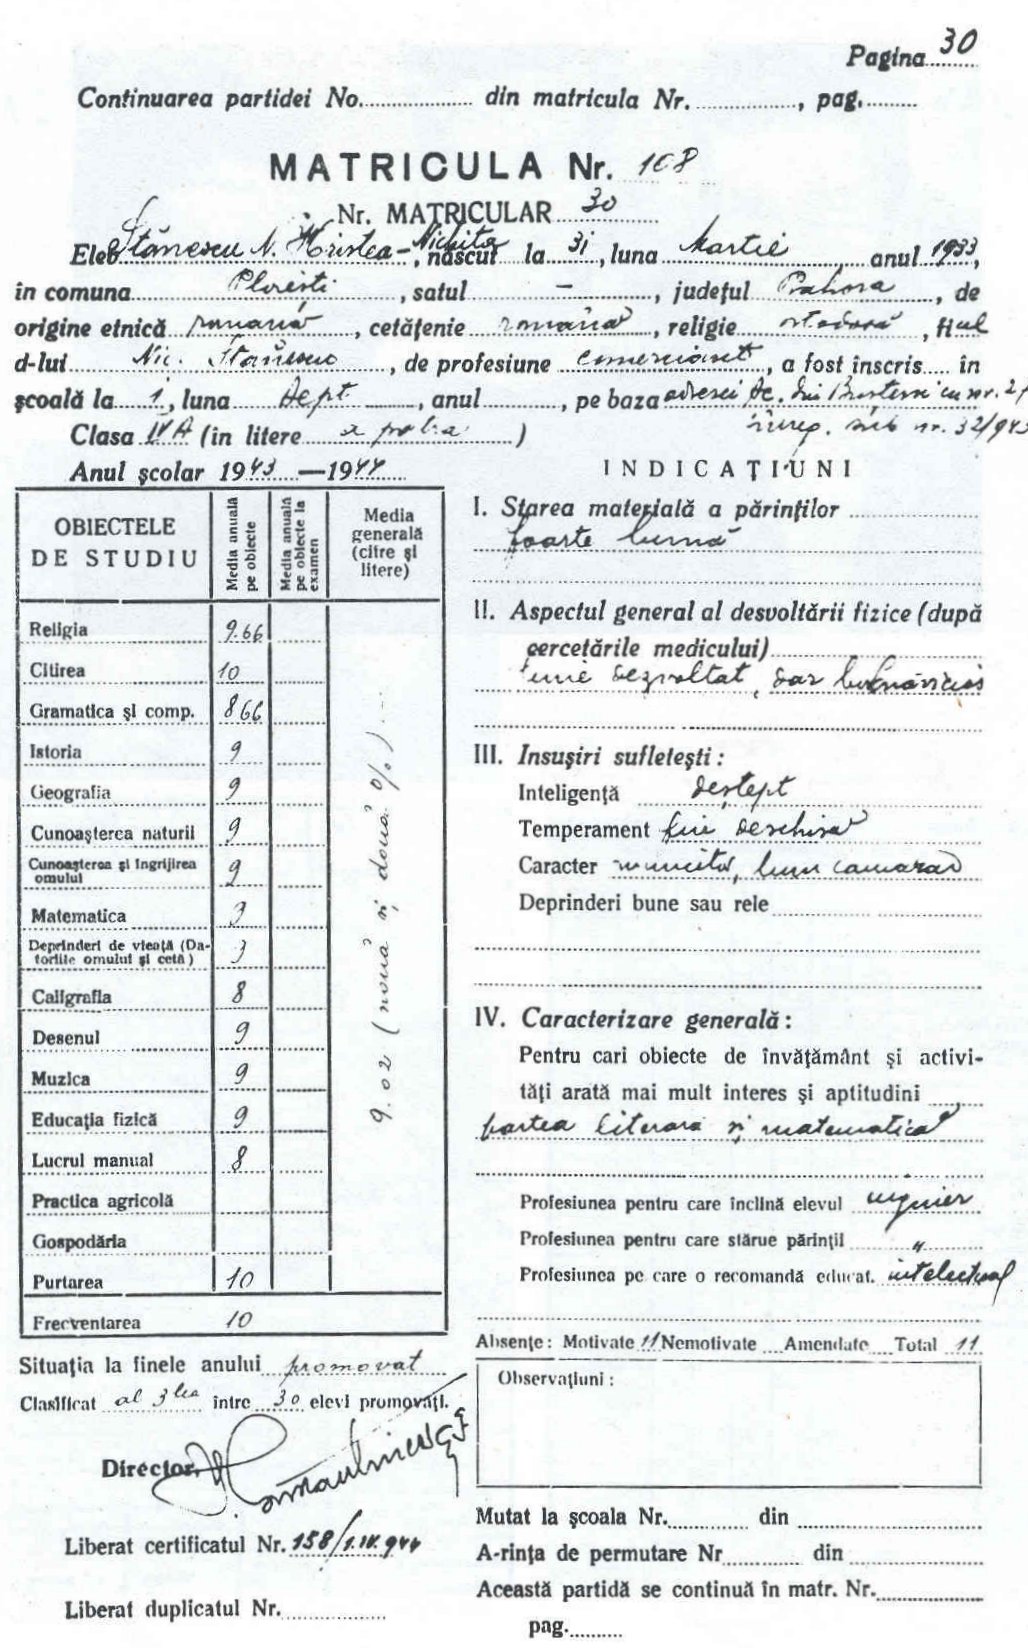 Pagina 30
Continuarea partidei No. din matricula Nr. , pag.
MATRICULA Nr. 108
Nr. MATRICULAR 30
Elev Stănescu N. Hristea-Nichita, născut la 31, luna Martie anul 1933,
în comuna Ploiești, satul –, județul Prahova, de
origine etnică română, cetățenie română, religie ortodoxă, fiul
d-lui Nic. Stănescu, de profesiune comerciant, a fost înscris în
școală la 1, luna Sept, anul , pe baza adresei
înreg. sub nr. 32/943
Clasa IV A (în litere a patra)
Anul școlar 1943—1944
INDICAȚIUNI
OBIECTELE DE STUDIU
Media anuală pe obiecte
Media anuală pe obiecte la examen
Media generală (cifre și litere)
Religia 9.66
Citirea 10
Gramatica și comp. 8 66
Istoria 9
Geografia 9
Cunoașterea naturii 9
Cunoașterea și îngrijirea omului 9
Matematica 9
Deprinderi de vieață (Datoriile omului și cetă) 9
Caligrafia 8
Desenul 9
Muzica 9
Educația fizică 9
Lucrul manual 8
Practica agricolă
Gospodăria
Purtarea 10
Frecventarea 10
9.02 (nouă și două %)
I. Starea materială a părinților
foarte bună
II. Aspectul general al desvoltării fizice (după
cercetările medicului)
bine dezvoltat, dar bolnăvicios
III. Insușiri sufletești:
Inteligență deștept
Temperament fire deschisă
Caracter muncitor, bun camarad
Deprinderi bune sau rele
IV. Caracterizare generală:
Pentru cari obiecte de învățământ și activi-
tăți arată mai mult interes și aptitudini
partea literară și matematică
Profesiunea pentru care înclină elevul inginer
Profesiunea pentru care stărue părinții "
Profesiunea pe care o recomandă educat. intelectual
Absențe: Motivate 11 Nemotivate Amendate Total 11
Observațiuni:
Situația la finele anului promovat
Clasificat al 3 lea între 30 elevi promovați.
Director,
Liberat certificatul Nr. 158/1.IX.944
Liberat duplicatul Nr.
Mutat la școala Nr. din
A-rința de permutare Nr din
Această partidă se continuă în matr. Nr.
pag.